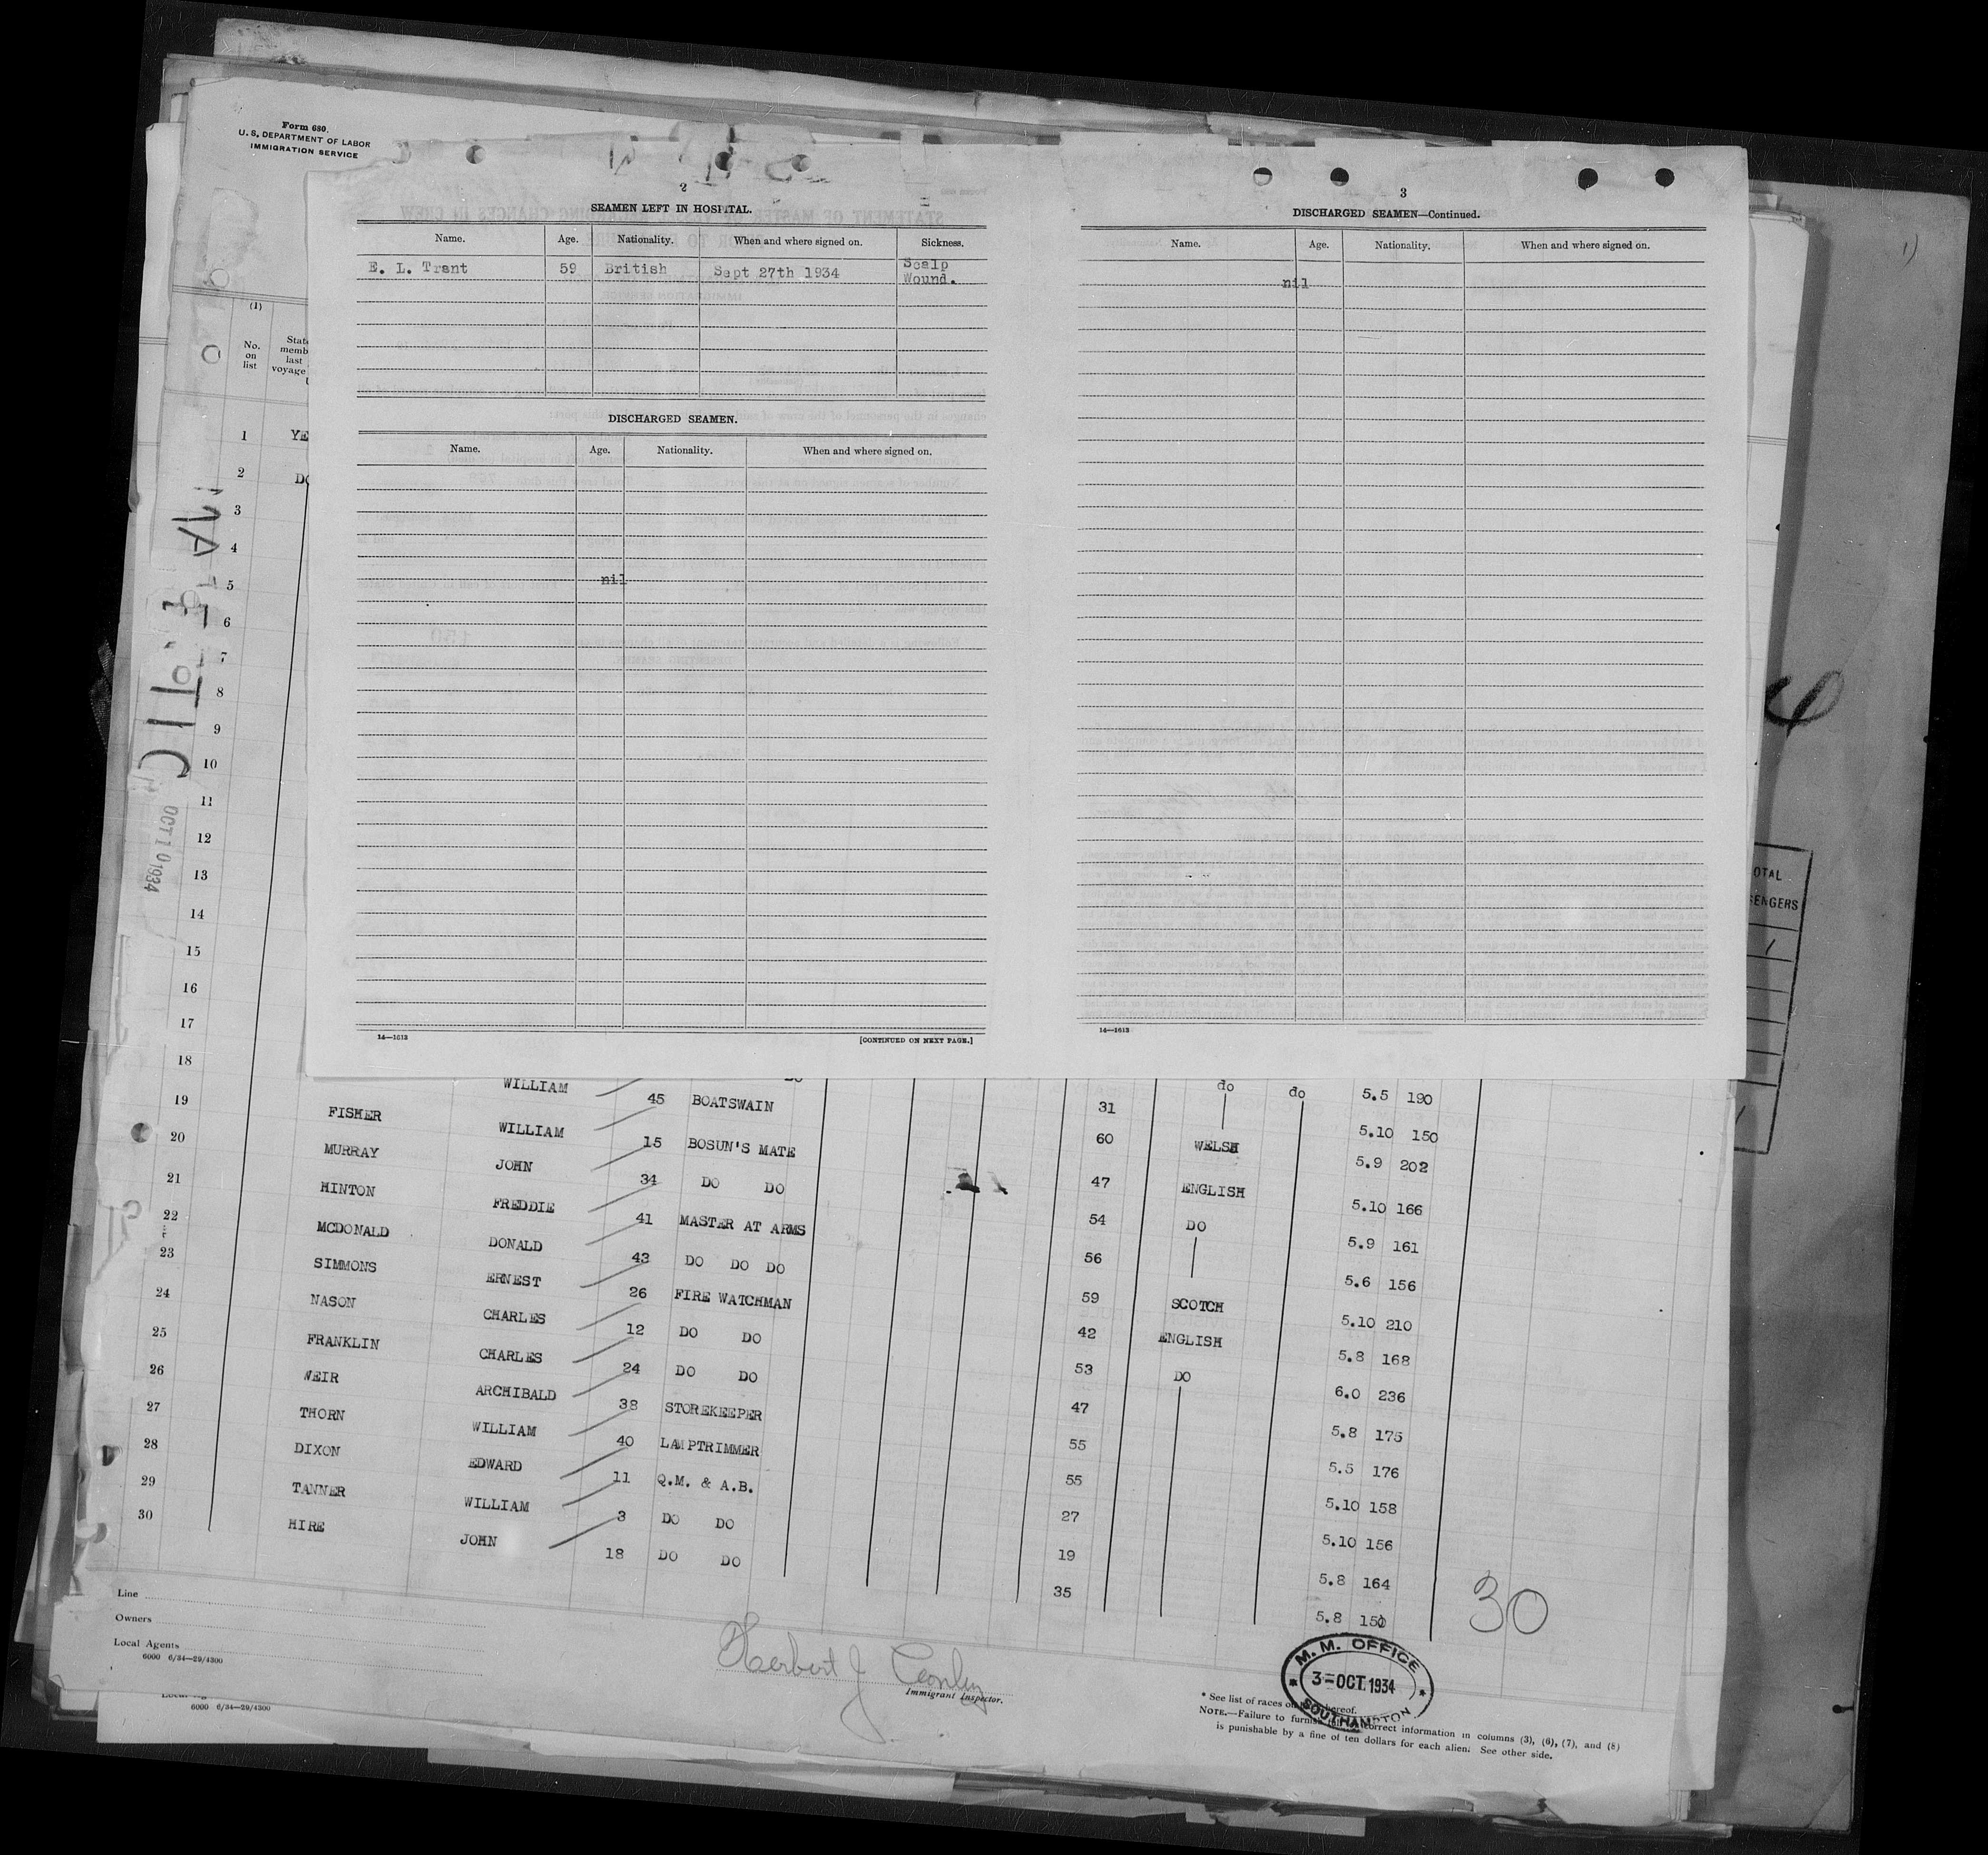 Form 680.
U. S. DEPARTMENT OF LABOR
IMMIGRATION SERVICE
2
SEAMEN LEFT IN HOSPITAL.
Name. Age. Nationality. When and where signed on. Sickness.
E. L. Trant 59 British Sept 27th 1934 Scalp Wound.
DISCHARGED SEAMEN.
Name. Age. Nationality. When and where signed on.
nil
14—1613 [CONTINUED ON NEXT PAGE.]
3
DISCHARGED SEAMEN—Continued.
Name. Age. Nationality. When and where signed on.
nil
14—1613
(1)
No. on list
1 YE
2 DO
3
4
5
6
7
8
9
10
11
12
13
14
15
16
17
18
19
20
21
22
23
24
25
26
27
28
29
30
OCT 10 1934
OTAL
SENGERS
WILLIAM 45 BOATSWAIN 31 do do 5.5 190
FISHER WILLIAM 15 BOSUN'S MATE 60 WELSH 5.10 150
MURRAY JOHN 34 DO DO 47 ENGLISH 5.9 202
HINTON FREDDIE 41 MASTER AT ARMS 54 DO 5.10 166
MCDONALD DONALD 43 DO DO DO 56 5.9 161
SIMMONS ERNEST 26 FIRE WATCHMAN 59 SCOTCH 5.6 156
NASON CHARLES 12 DO DO 42 ENGLISH 5.10 210
FRANKLIN CHARLES 24 DO DO 53 DO 5.8 168
WEIR ARCHIBALD 38 STOREKEEPER 47 6.0 236
THORN WILLIAM 40 LAMPTRIMMER 55 5.8 175
DIXON EDWARD 11 Q.M. & A.B. 55 5.5 176
TANNER WILLIAM 3 DO DO 27 5.10 158
HIRE JOHN 18 DO DO 19 5.10 156
35 5.8 164
5.8 150
30
Line
Owners
Local Agents
6000 6/34—29/4300
6000 6/34—29/4300
Herbert J Conley
Immigrant Inspector.
M. M. OFFICE
3-OCT.1934
SOUTHAMPTON
* See list of races on hereof.
NOTE.—Failure to furnish correct information in columns (3), (6), (7), and (8)
is punishable by a fine of ten dollars for each alien. See other side.